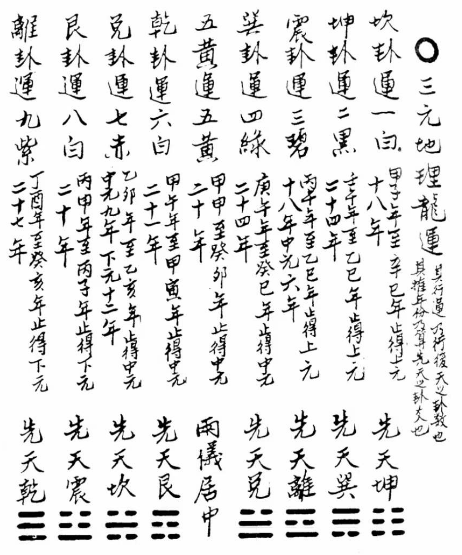 ○三元地理龍運
其行運乃行後天之卦數也
其推年份乃算先天之卦爻也
坎卦運一白
甲子年至辛巳年止得上元
十八年
先天坤
坤卦運二黑
壬午年至乙巳年止得上元
二十四年
先天巽
震卦運三碧
丙午年至乙巳年止得上元
十八年中元六年
先天離
巽卦運四綠
庚午年至癸巳年止得中元
二十四年
先天兌
五黃運五黃
甲申年至癸卯年止得中元
二十年
兩儀居中
乾卦運六白
甲午年至甲寅年止得中元
二十一年
先天艮
兌卦運七赤
乙卯年至乙亥年止得中元
中元九年下元十二年
先天坎
艮卦運八白
丙甲年至丙子年止得下元
二十年
先天震
離卦運九紫
丁酉年至癸亥年止得下元
二十七年
先天乾